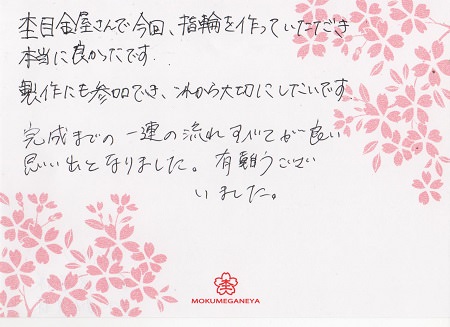 杢目金屋さんで今回、指輪を作っていただき
本当に良かったです.
製作にも参加でき、これから大切にしたいです.
完成までの一連の流れすべてが良い
思い出となりました。有難うござい
いました。
杢
MOKUMEGANEYA